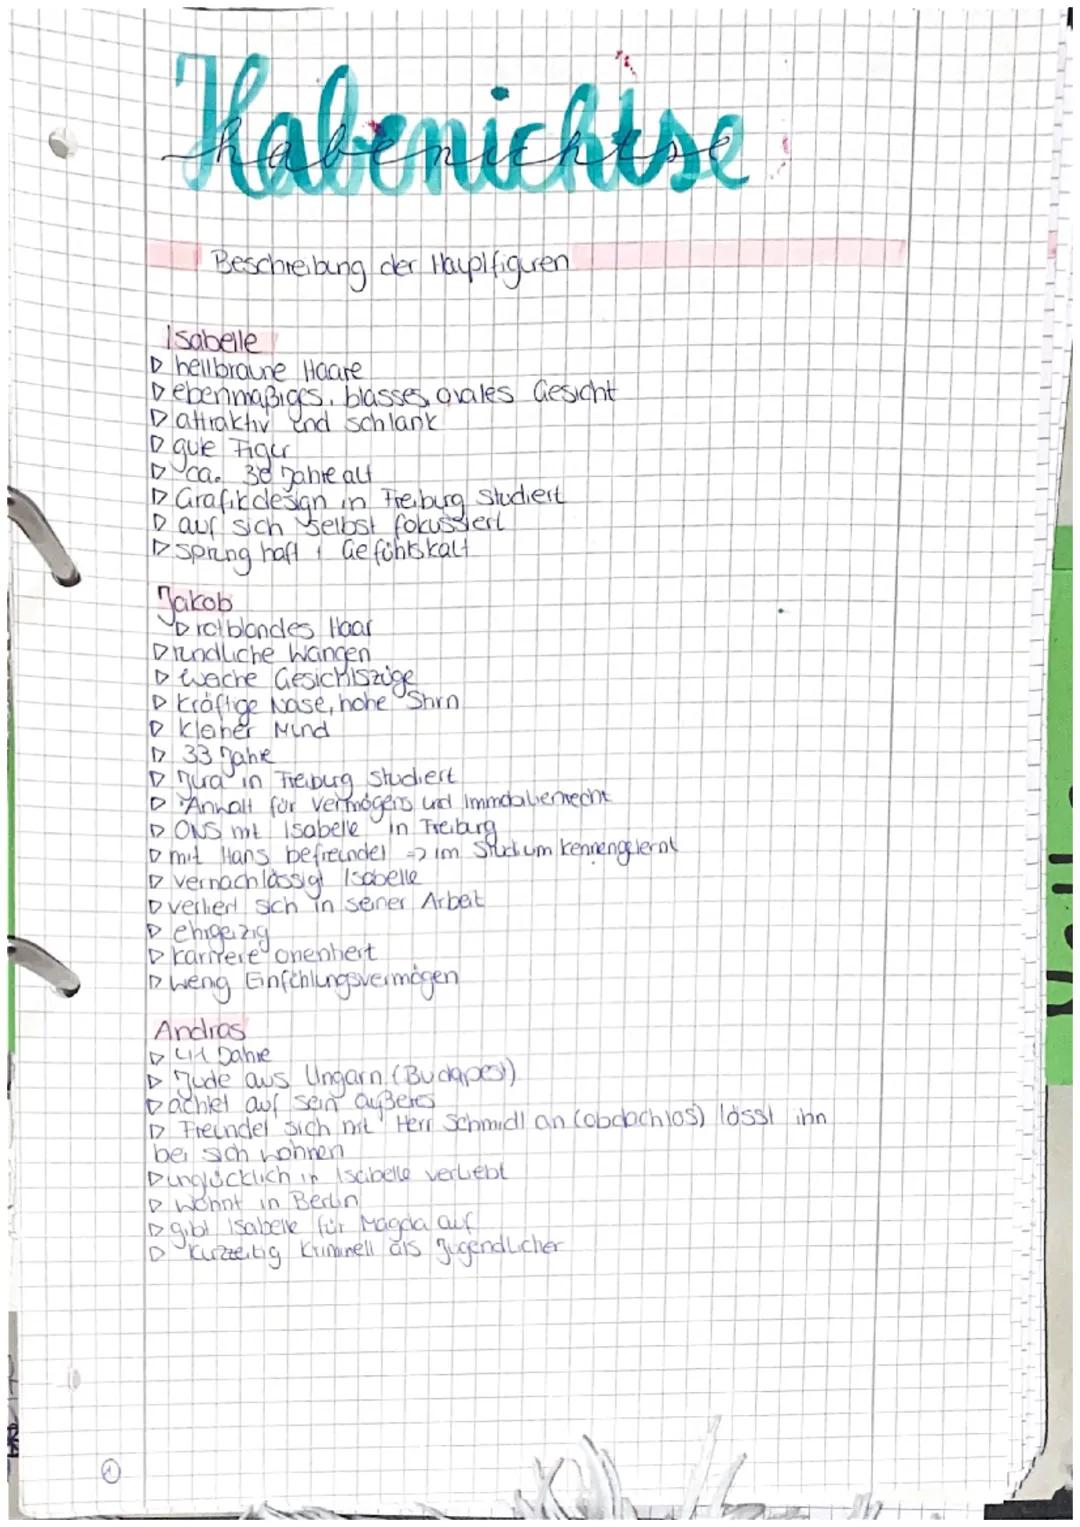 Habenichtse
habenichtse
Beschreibung der Hauptfiguren
Isabelle
▷ hellbraune Haare
▷ ebenmäßiges, blasses, ovales Gesicht
▷ attraktiv und schlank
▷ gute Figur
▷ ca. 30 Jahre alt
▷ Grafikdesign in Freiburg studiert
▷ auf sich selbst fokussiert
▷ sprunghaft, Gefühlskalt
Jakob
▷ rotblondes Haar
▷ rundliche Wangen
▷ weiche Gesichtszüge
▷ kräftige Nase, hohe Stirn
▷ kleiner Mund
▷ 33 Jahre
▷ Jura in Freiburg studiert
▷ Anwalt für Vermögens und Immobilienrecht
▷ ONS mit Isabelle in Freiburg
▷ mit Hans befreundet => im Studium kennengelernt
▷ vernachlässigt Isabelle
▷ verliert sich in seiner Arbeit
▷ ehrgeizig
▷ karriere orientiert
▷ wenig Einfühlungsvermögen
Andras
▷ Jahre
▷ Jude aus Ungarn (Budapest)
▷ achtet auf sein äußeres
▷ Freundet sich mit Herr Schmidt an (obdachlos) lässt ihn
bei sich wohnen
▷ unglücklich in Isabelle verliebt
▷ wohnt in Berlin
▷ gibt Isabelle für Magda auf
▷ kurzzeitig kriminell als Jugendlicher
1